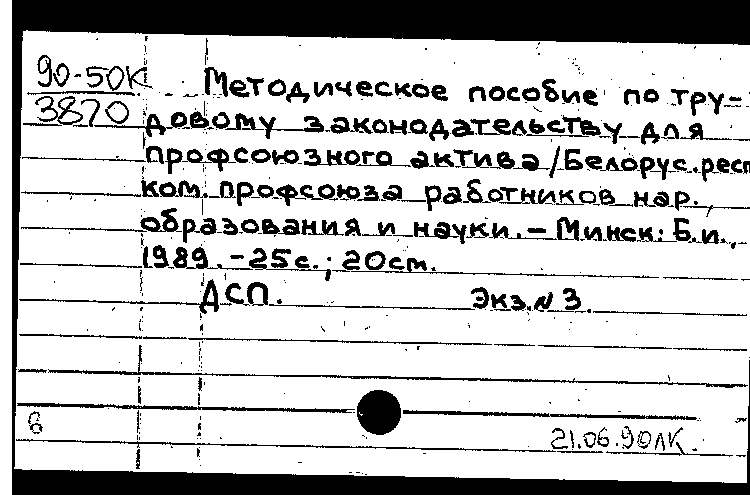 90-50К
3870
Методическое пособие по тру-
довому законодательству для
профсоюзного актива/Белорус.респ
ком. профсоюза работников нар.,
образования и науки.-Минск: Б.и.,
1989.-25с.; 20см.
ДСП. Экз.№ 3.
6
21.06.90ЛК.